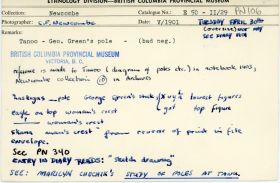 ETHNOLOGY DIVISION — BRITISH COLUMBIA PROVINCIAL MUSEUM
Collection: Newcombe Catalogue No: B 50 - II/29 PN/106
Photographer: C.F. Newcombe Date: V/1901
TUESDAY APRIL 30th
SEE DIARY 1901
Remarks:
Tanoo - Geo. Green's pole - (bad neg.)
BRITISH COLUMBIA PROVINCIAL MUSEUM
VICTORIA, B. C.
reference is made to Tanoo (diagram of poles etc.) in notebook 1903,
Newcombe Collection in Archives
pole George Green's lowest fig
eagle on top woman's crest got top figure
woman's crest
man's crest - from reverse of print in file
envelope.
See PN 340
ENTRY IN DIARY READS: "Sketch drawing"
SEE: MARILYN CHECHIK'S STUDY OF POLES AT TANU.